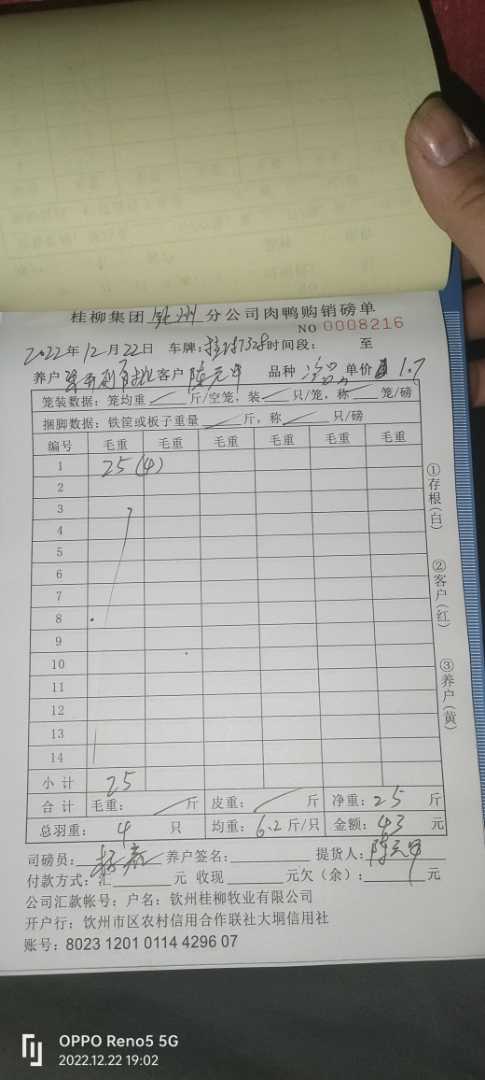 桂柳集团 钦州 分公司肉鸭购销磅单
NO 0008216
2022年12月22日 车牌: 7328 时间段: 至
养户 客户 陈元 品种 单价 1.7
笼装数据: 笼均重 斤/空笼, 装 只/笼, 称 笼/磅
捆脚数据: 铁筐或板子重量 斤, 称 只/磅
编号 毛重 毛重 毛重 毛重 毛重 毛重
1 25(4)
2
3
4
5
6
7
8
9
10
11
12
13
14
小计 25
合计 毛重: 斤 皮重: 斤 净重: 25 斤
总羽重: 4 只 均重: 6.2 斤/只 金额: 43 元
①存根(白)
②客户(红)
③养户(黄)
司磅员: 养户签名: 提货人: 陈元
付款方式: 汇 元 收现 元欠(余): 元
公司汇款帐号: 户名: 钦州桂柳牧业有限公司
开户行: 钦州市区农村信用合作联社大垌信用社
账号: 8023 1201 0114 4296 07
OPPO Reno5 5G
2022.12.22 19:02